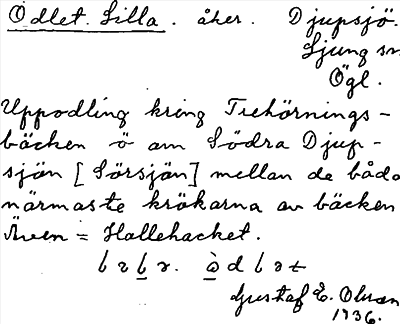 Odlet. Lilla. åker. Djupsjö.
Ljung sn
Ögl.
Uppodling kring Trehörnings-
bäcken ö om Södra Djup-
sjön [Sörsjön] mellan de båda
närmaste krökarna av bäcken
Även = Hallehacket.
Gustaf E. Olsson
1936.